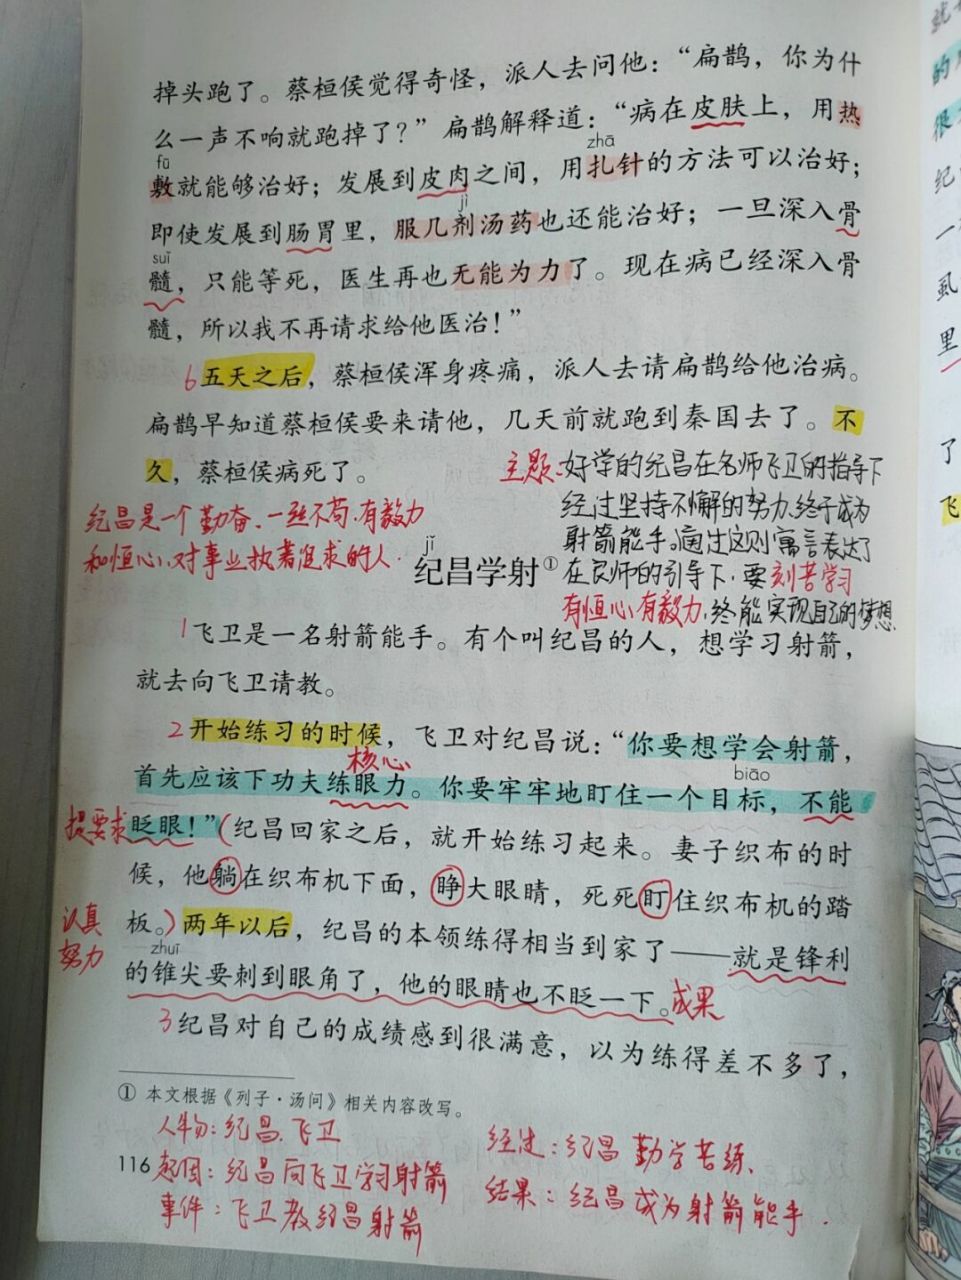 掉头跑了。蔡桓侯觉得奇怪，派人去问他：“扁鹊，你为什
么一声不响就跑掉了？”扁鹊解释道：“病在皮肤上，用热
fū
zhā
敷就能够治好；发展到皮肉之间，用扎针的方法可以治好；
jì
即使发展到肠胃里，服几剂汤药也还能治好；一旦深入骨
suǐ
髓，只能等死，医生再也无能为力了。现在病已经深入骨
髓，所以我不再请求给他医治！”
6五天之后，蔡桓侯浑身疼痛，派人去请扁鹊给他治病。
扁鹊早知道蔡桓侯要来请他，几天前就跑到秦国去了。不
久，蔡桓侯病死了。
主题：好学的纪昌在名师飞卫的指导下
经过坚持不懈的努力、终于成为
射箭能手。通过这则寓言表达了
在良师的引导下、要刻苦学习
有恒心、有毅力、终能实现自己的梦想
纪昌是一个勤奋、一丝不苟、有毅力
和恒心、对事业执着追求的人．
jǐ
纪昌学射①
1飞卫是一名射箭能手。有个叫纪昌的人，想学习射箭，
就去向飞卫请教。
2开始练习的时候，飞卫对纪昌说：“你要想学会射箭，
核心
biāo
首先应该下功夫练眼力。你要牢牢地盯住一个目标，不能
提要求
眨眼！”（纪昌回家之后，就开始练习起来。妻子织布的时
候，他躺在织布机下面，睁大眼睛，死死盯住织布机的踏
认真
努力
板。）两年以后，纪昌的本领练得相当到家了——就是锋利
zhuī
的锥尖要刺到眼角了，他的眼睛也不眨一下。成果
3纪昌对自己的成绩感到很满意，以为练得差不多了，
① 本文根据《列子·汤问》相关内容改写。
人物：纪昌、飞卫
116
起因：纪昌向飞卫学习射箭
事件：飞卫教纪昌射箭
经过：纪昌 勤学苦练、
结果：纪昌成为射箭能手．
的
很
纪
一
虱
里
了
飞